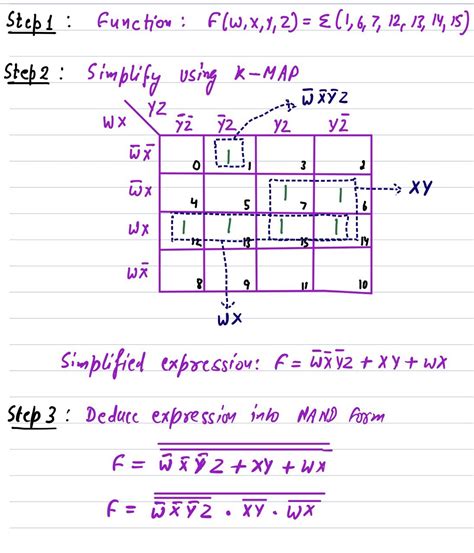 Step 1 : Function : F(W,X,Y,Z) = Σ(1,6,7,12,13,14,15)
Step 2 : Simplify using K-MAP
W̅X̅Y̅Z
YZ
WX Y̅Z̅ Y̅Z YZ YZ̅
W̅X̅ 0 1 1 3 2
W̅X 4 5 1 7 1 6 XY
WX 1 12 1 13 1 15 1 14
WX̅ 8 9 11 10
WX
Simplified expression: F = W̅X̅Y̅Z + XY + WX
Step 3 : Deduce expression into NAND form
F = \overline{\overline{W̅ X̅ Y̅ Z + XY + WX}}
F = \overline{\overline{W̅ X̅ Y̅ Z} . \overline{XY} . \overline{WX}}